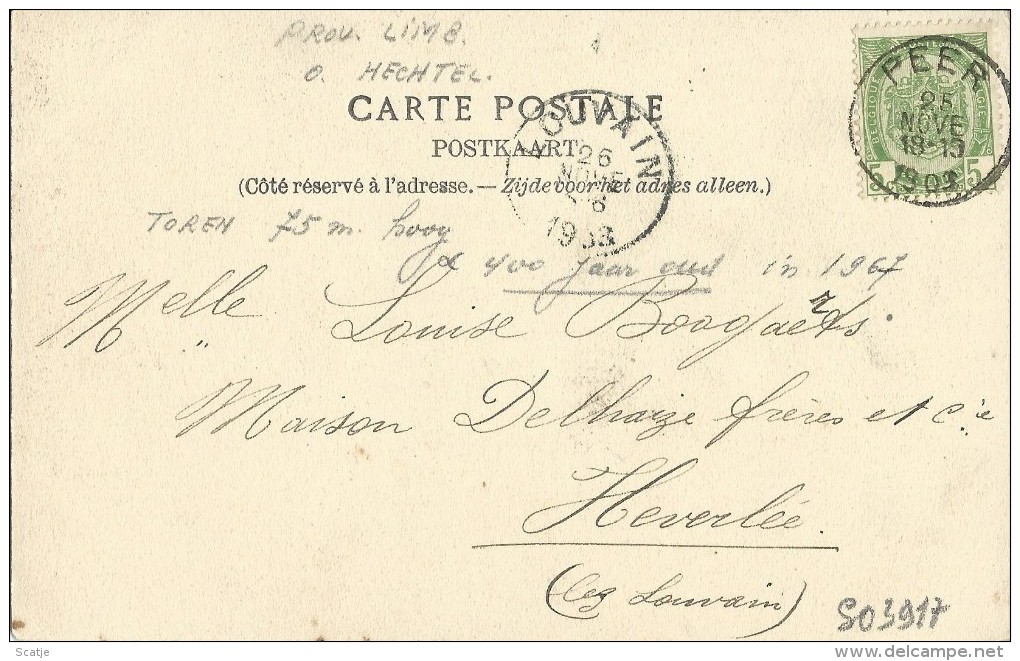 PROV. LIMB.
O. HECHTEL.
CARTE POSTALE
POSTKAART
(Côté réservé à l'adresse. — Zijde voor het adres alleen.)
PEER
25
NOVE
18-19
1903
BELGIQUE
5 5
LOUVAIN
26
NOVE
6
1903
TOREN 75 m. hoog
& 400 jaar oud in 1967
Melle Louise Boogaerts.
Maison Delhaize frères et Cie
Heverlée.
(lez Louvain)
S03917
Scatje
delcampe.net